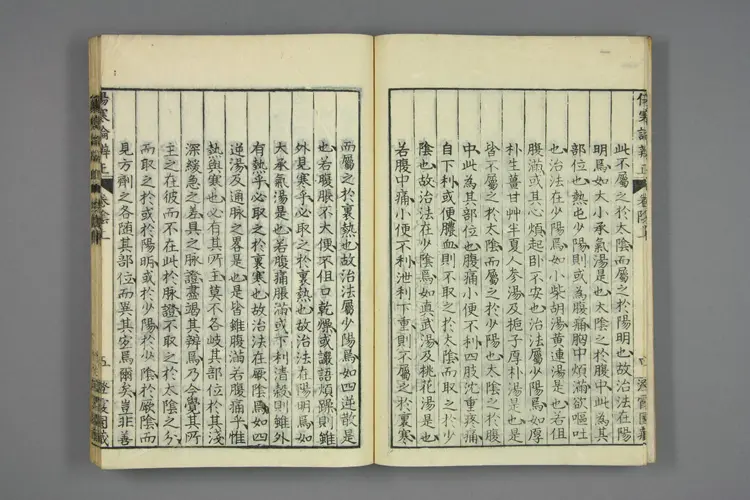 此不屬之於太陰而屬之於陽明也故治法在陽
明焉如大小承氣湯是也太陰之於腹中此為其
部位也熱屯少陽則或為腹痛胸中煩滿欲嘔吐
也治法在少陽焉如小柴胡湯黃連湯是也若但
腹滿或其心煩起卧不安也治法屬少陽焉如厚
朴生薑甘艸半夏人參湯及梔子厚朴湯是也是
皆不屬之於太陰而屬之於少陽也太陰之於腹
中此為其部位也腹痛小便不利四肢沈重疼痛
自下利或便膿血則不取之於太陰而取之於少
陰也故治法在少陰焉如真武湯及桃花湯是也
若腹中痛小便不利泄利下重則不屬之於裏寒
傷寒論辨正 卷陰上
四
而屬之於裏熱也故治法屬少陽焉如四逆散是
也若腹脹不大便不但口乾燥或讝語煩躁則雖
外見寒乎必取之於裏熱也故治法在陽明焉如
大承氣湯是也若腹痛脹滿或下利清穀則雖外
有熱乎必取之於裏寒也故治法在厥陰焉如四
逆湯及通脈之畧是也是皆雖腹滿若腹痛乎惟
熱與寒也必有其所主莫不各岐其部位於其淺
深緩急之差具之脈證盡竭其辨焉乃今覺其所
主之在彼而不在此於脈證不取之於太陰之分
而取之於或於陽明或於少陽於少陰於厥陰而
見方劑之各隨其部位而異其宜焉爾矣豈非善
傷寒論辨正 卷陰上
五